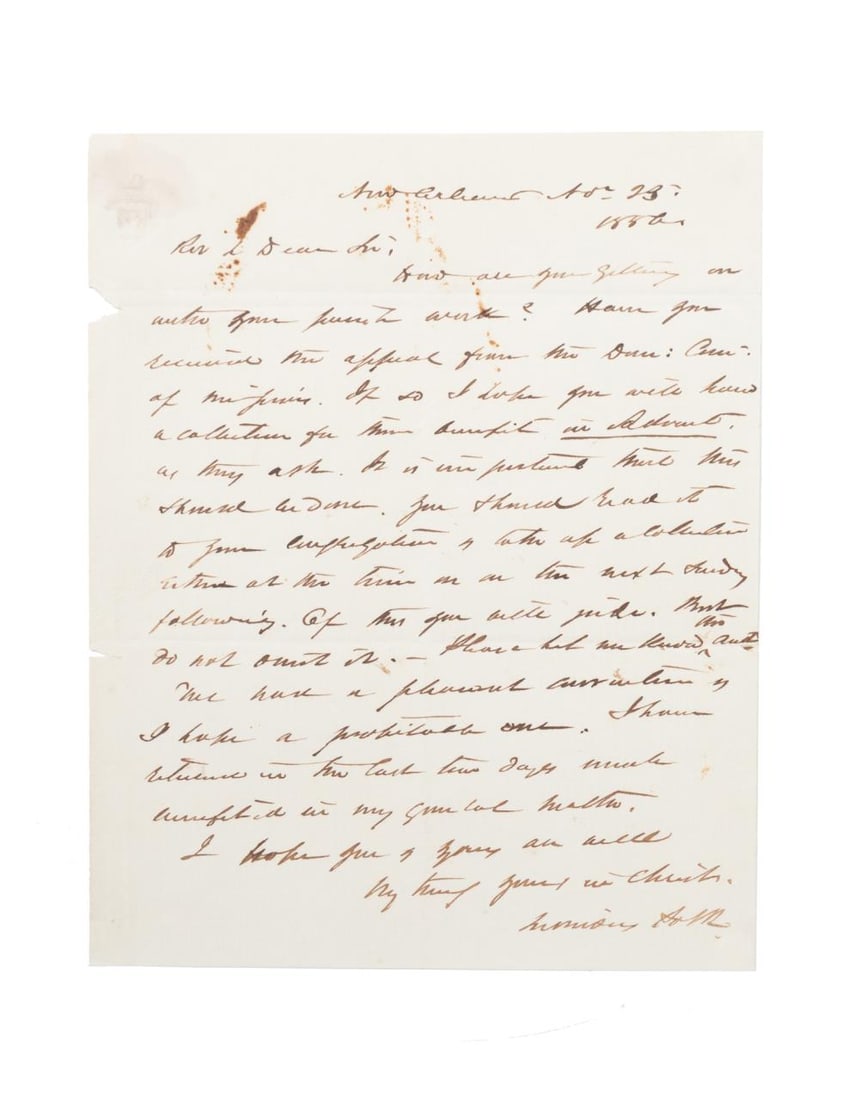 New Orleans Nov. 23.
1856.
Rev & Dear Sir,
How are you getting on
with your parish work? Have you
received the appeal from the Dom: Com:
of missions. If so I hope you will have
a collection for their benefit in Advent.
as they ask. It is important that this
should be done. You should read it
to your congregation & take up a collection
either at the time or on the next Sunday
following. Of this you will judge. But
do not omit it. — Please let me know this
We had a pleasant convention &
I hope a profitable one. I have
returned in the last two days much
benefited in my general health.
I hope you & yours are well
Very truly yours in Christ.
Leonidas Polk